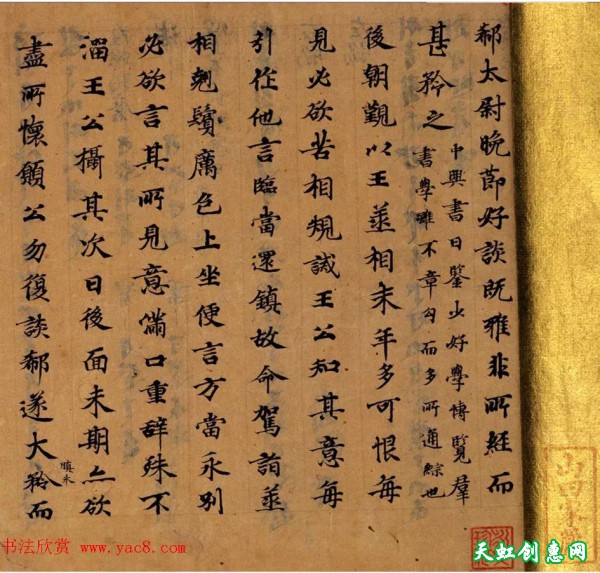 郗太尉晚節好談既雅非所経而
甚矜之 中興書曰鑒少好學博覧羣
書學雖不章句而多所通綜也
後朝覲以王𦭘相末年多可恨每
見必欲苦相規誡王公知其意每
引作他言臨當還鎮故命駕詣𦭘
相翹鬚厲色上坐便言方當永別
必欲言其所見意滿口重辞殊不
溜王公攝其次曰後面未期亦欲
盡所懐願公勿復談郗遂大矜而
瞋氷
书法欣赏 www.yac8.com
天虹创惠网